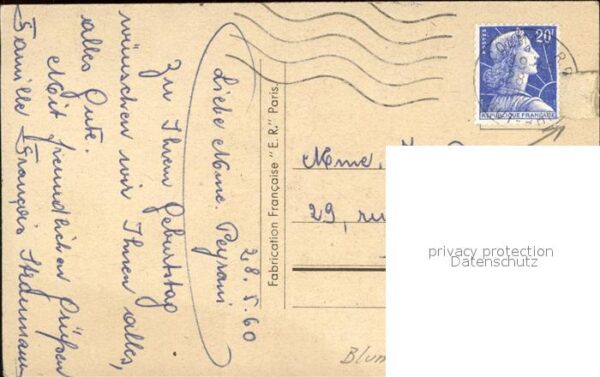 28.5.60
Liebe Mme. Peyrani
Zu Ihrem Geburtstag
wünschen wir Ihnen alles,
alles Gute.
Mit freundlichen Grüßen
Famille François
Fabrication Française "E. R." Paris.
POSTES
20F
REPUBLIQUE FRANÇAISE
Mme.
29, ru
privacy protection
Datenschutz
Blum